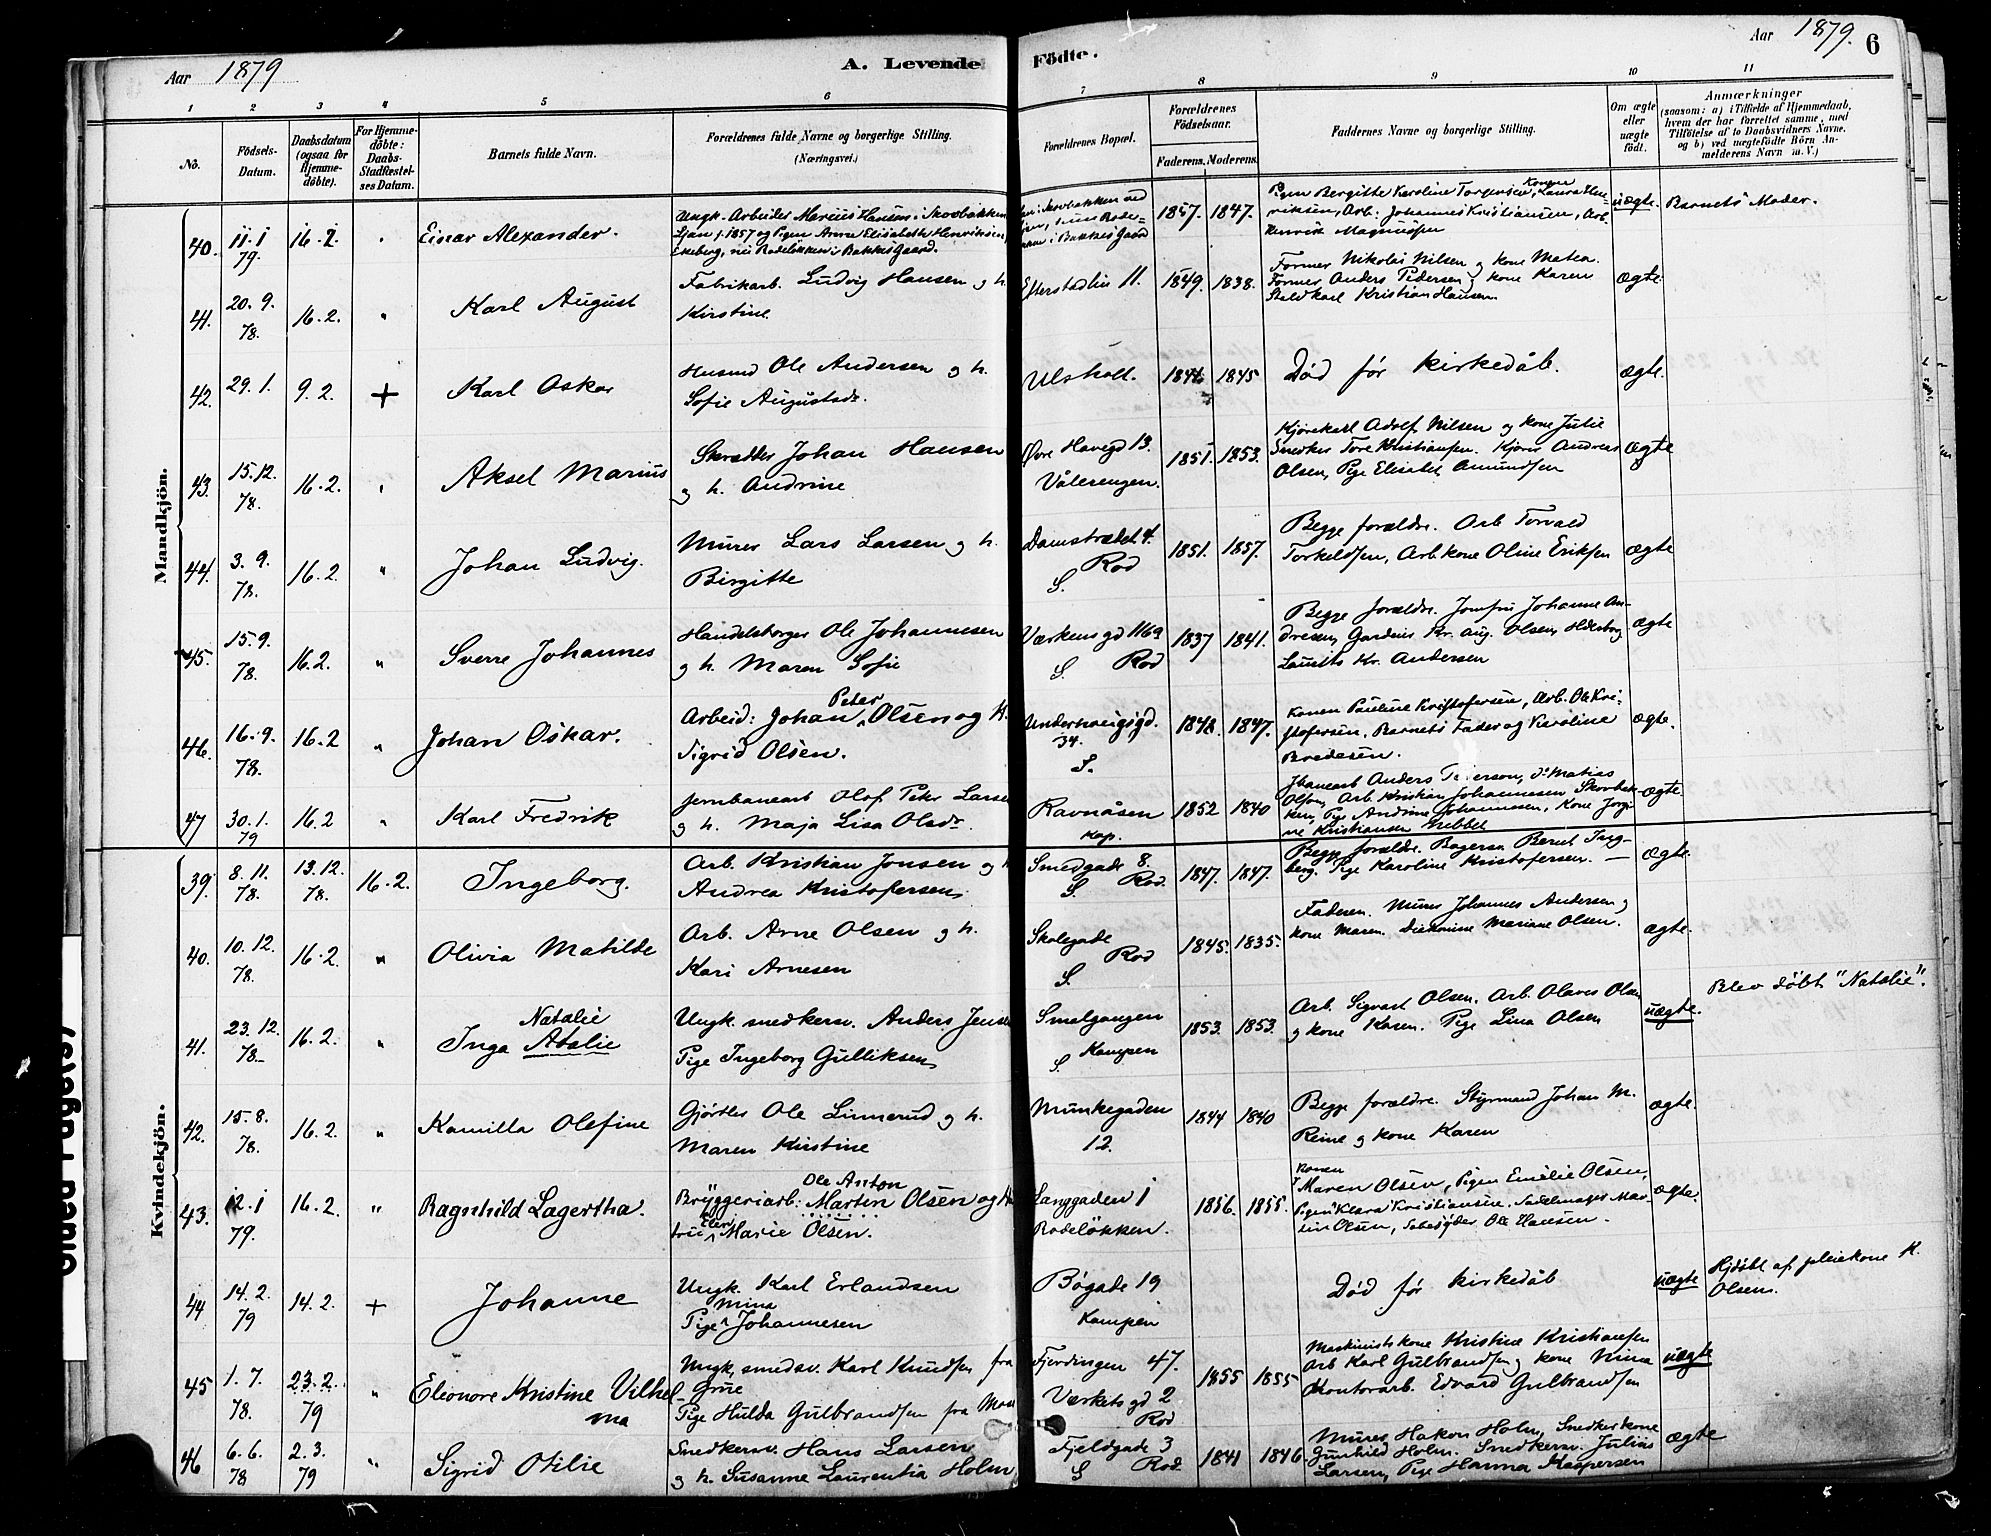 Aar 1879
A. Levende Födte.
Aar 1879.
6
1 2 3 4 5 6 7 8 9 10 11
No.
Födsels-
Datum.
Daabsdatum
(ogsaa for
Hjemme-
döbte).
For Hjemme-
döbte:
Daabs-
Stadfæstel-
ses Datum.
Barnets fulde Navn.
Forældrenes fulde Navne og borgerlige Stilling.
(Næringsvei.)
Forældrenes Bopæl.
Forældrenes
Födselsaar.
Faderens. Moderens.
Faddernes Navne og borgerlige Stilling.
Om ægte
eller
uægte
födt.
Anmærkninger
(saasom: a) i Tilfælde af Hjemmedaab,
hvem der har forrettet samme, med
Tilföielse af to Daabsvidners Navne,
og b) ved uægtefödte Börn An-
melderens Navn m. V.)
Mandkjön.
40. 11.1 79. 16.2. Einar Alexander.
Ungk. Arbeider Marius Hansen i Skovbakken
Ljan f. 1857 og Pigen Anna Elisabeth Henriksen
Ekeberg, nu Rodeløkken i Bakkes Gaard.
1857. 1847.
Pigen Bergitte Karoline Torgensen, Konen Laura Hen-
riksen, Arb. Johannes Kristiansen, Arb.
Henrik Magnussen
uægte. Barnets Moder.
41. 20.9. 78. 16.2. " Karl August
Fabrikarb. Ludvig Hansen og h.
Kirstine.
Efterstadlin 11. 1849. 1838.
Former Nikolai Nilsen og kone Matea.
Former Anders Pedersen og kone Karen
Staldkarl Kristian Hansen
ægte.
42. 29.1. 9.2. + Karl Oskar
Husmd Ole Andersen og h.
Sofie Augustadr.
Ulsholt. 1846 1845 Død før kirkedåb. ægte.
43. 15.12. 78. 16.2. " Aksel Marius
Skrædder Johan Hansen
og h. Andrine
Øvre Havegd 13.
Vålerengen.
1851. 1853.
Kjørekarl Adolf Nilsen og kone Julie
Snedker Tore Kristiansen. Kjører Andreas
Olsen, Pige Elisabet Amundsen
ægte
44. 3.9. 78. 16.2. " Johan Ludvig.
Murer Lars Larsen og h.
Birgitte
Damstrædet 4.
S. Rod
1851. 1857.
Begge forældre. Arb Torvald
Torkeldsen, Arb. kone Oline Eriksen
ægte
45. 15.9. 78. 16.2. " Sverre Johannes
Handelsborger Ole Johannesen
og h. Maren Sofie
Værkens gd 116a
S. Rod
1837 1841.
Begge forældre. Jomfru Johanne An-
dresen, Gardein Kr. Aug. Olsen, Hdlsborg
Laurits Kr. Andersen
ægte
46. 16.9. 78. 16.2 " Johan Oskar.
Arbeid: Johan Peter Olsen og H.
Sigrid Olsen.
Underhaugsgd.
34.
S.
1848. 1847.
Konen Pauline Kristofersen, Arb. Ole Kri-
stofersen, Barnets Fader og Karoline
Bredesen.
ægte.
47 30.1. 79 16.2 " Karl Fredrik
Jernbanearb Olof Peter Larsen
og h. Maja Lisa Olsdr.
Ravnåsen
kap.
1852 1840
Jbanearb Anders Peterson, do Matias
Olson, Arb. Kristian Johannesen Skovbak-
ken, Pige Andrine Johannesen, Kone Jorgi-
ne Kristiansen Grebbel
ægte.
Kvindekjön.
39. 8.11. 78. 13.12. 78. 16.2. Ingeborg.
Arb. Kristian Jonsen og h
Andrea Kristofersen
Smedgade 8.
S. Rod.
1847. 1847.
Begge forældre. Bagersv. Bernt Ing-
berg. Pige Karoline Kristofersen. —
ægte.
40. 10.12. 78. 16.2. " Olivia Matilde
Arb. Arne Olsen og h.
Kari Arnesen
Skolegade
S. Rod
1845. 1835.
Faderen. Murer Johannes Andersen og
kone Maren. Diekonne Mariane Olsen.
ægte.
41. 23.12. 78. 16.2. " Natalie
Inga Atalie
Ungk. snedkersv. Anders Jensen
Pige Ingeborg Gulliksen
Smalgangen
S. Kampen
1853. 1853.
Arb. Sigvart Olsen. Arb. Olaves Olsen
og kone Karen. Pige Lina Olsen
uægte. Blev døbt "Natalie".
42. 15.8. 78. 16.2. " Kamilla Olefine
Gjørtler Ole Linnerud og h.
Maren Kirstine
Munkegaden
12.
1844 1840
Begge forældre. Styrmand Johan M.
Reine og kone Karen
ægte.
43. 12.1 79. 16.2. " Ragnhild Lagertha.
Bryggeriarb: Ole Anton Martin Olsen og Hu-
stru Elen Marie Olsen.
Langgaden 1
Rodeløkken.
1856. 1855.
Konen Maren Olsen, Pigen Emelie Olsen,
Pigen Klara Kristiansen, Sadelmager Mar-
tin Olsen, Sæbesyder Ole Hansen.
ægte.
44 14.2. 79 14.2. + Johanne
Ungk. Karl Erlandsen
Pige Mina Johannesen
Bøgade 19
Kampen
Død før kirkedåb
uægte Hjdøbt af pleiekone K.
Olsen.
45 1.7. 78. 23.2. 79 " Eleonore Kristine Vilhel-
ma
Ungk, smedsv. Karl Knudsen fra
Grue
Pige Hulda Gulbrandsen fra Moss
Fjerdingen 47.
Værkets gd 2
Rod
1855 1855
Maskinistkone Kristine Kristiansen
Arb Karl Gulbrandsen og kone Nina
Kontorarb. Edvard Gulbrandsen
uægte
46 6.6. 78 2.3. 79 " Sigrid Otilie
Snedkersv. Hans Larsen
og h. Susanne Laurentia Holm
Fjeldgade 3
S Rod
1841 1846.
Murer Hakon Holm, Snedkerkone
Gunhild Holm. Snedkersv. Julius
Larsen, Pige Hanna Kaspersen
ægte